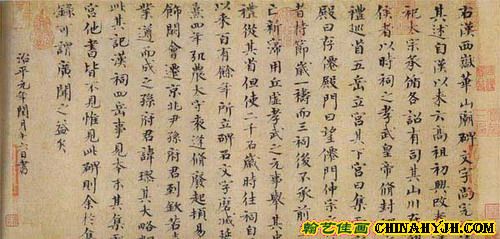 右漢西嶽華山廟碑文字尚完
其述自漢以來云高祖初興改秦
祀太宗承循各詔有司其山川在
侯者以時祠之孝武皇帝修封
禮巡省五岳立宮其下宮曰集
殿曰存僊殿門曰望僊門仲宗
者持節歲一禱而三祠後不承前
亡新寖用丘虛孝武之元事舉其中
禮從其省但使二千石歲時往祠自
以來百有餘年所立碑石文字磨滅延
熹四年弘農太守袁逢修廢起頓易
飾闕會遷京兆尹孫府君到欽若
業遵而成之孫府君諱璆其大略
此其記漢祠四岳事見本末其集
宮他書皆不見惟見此碑則余於集
錄可謂廣聞之益矣
治平元年閏月十六日書
翰艺佳画
CHINAHYJH.COM